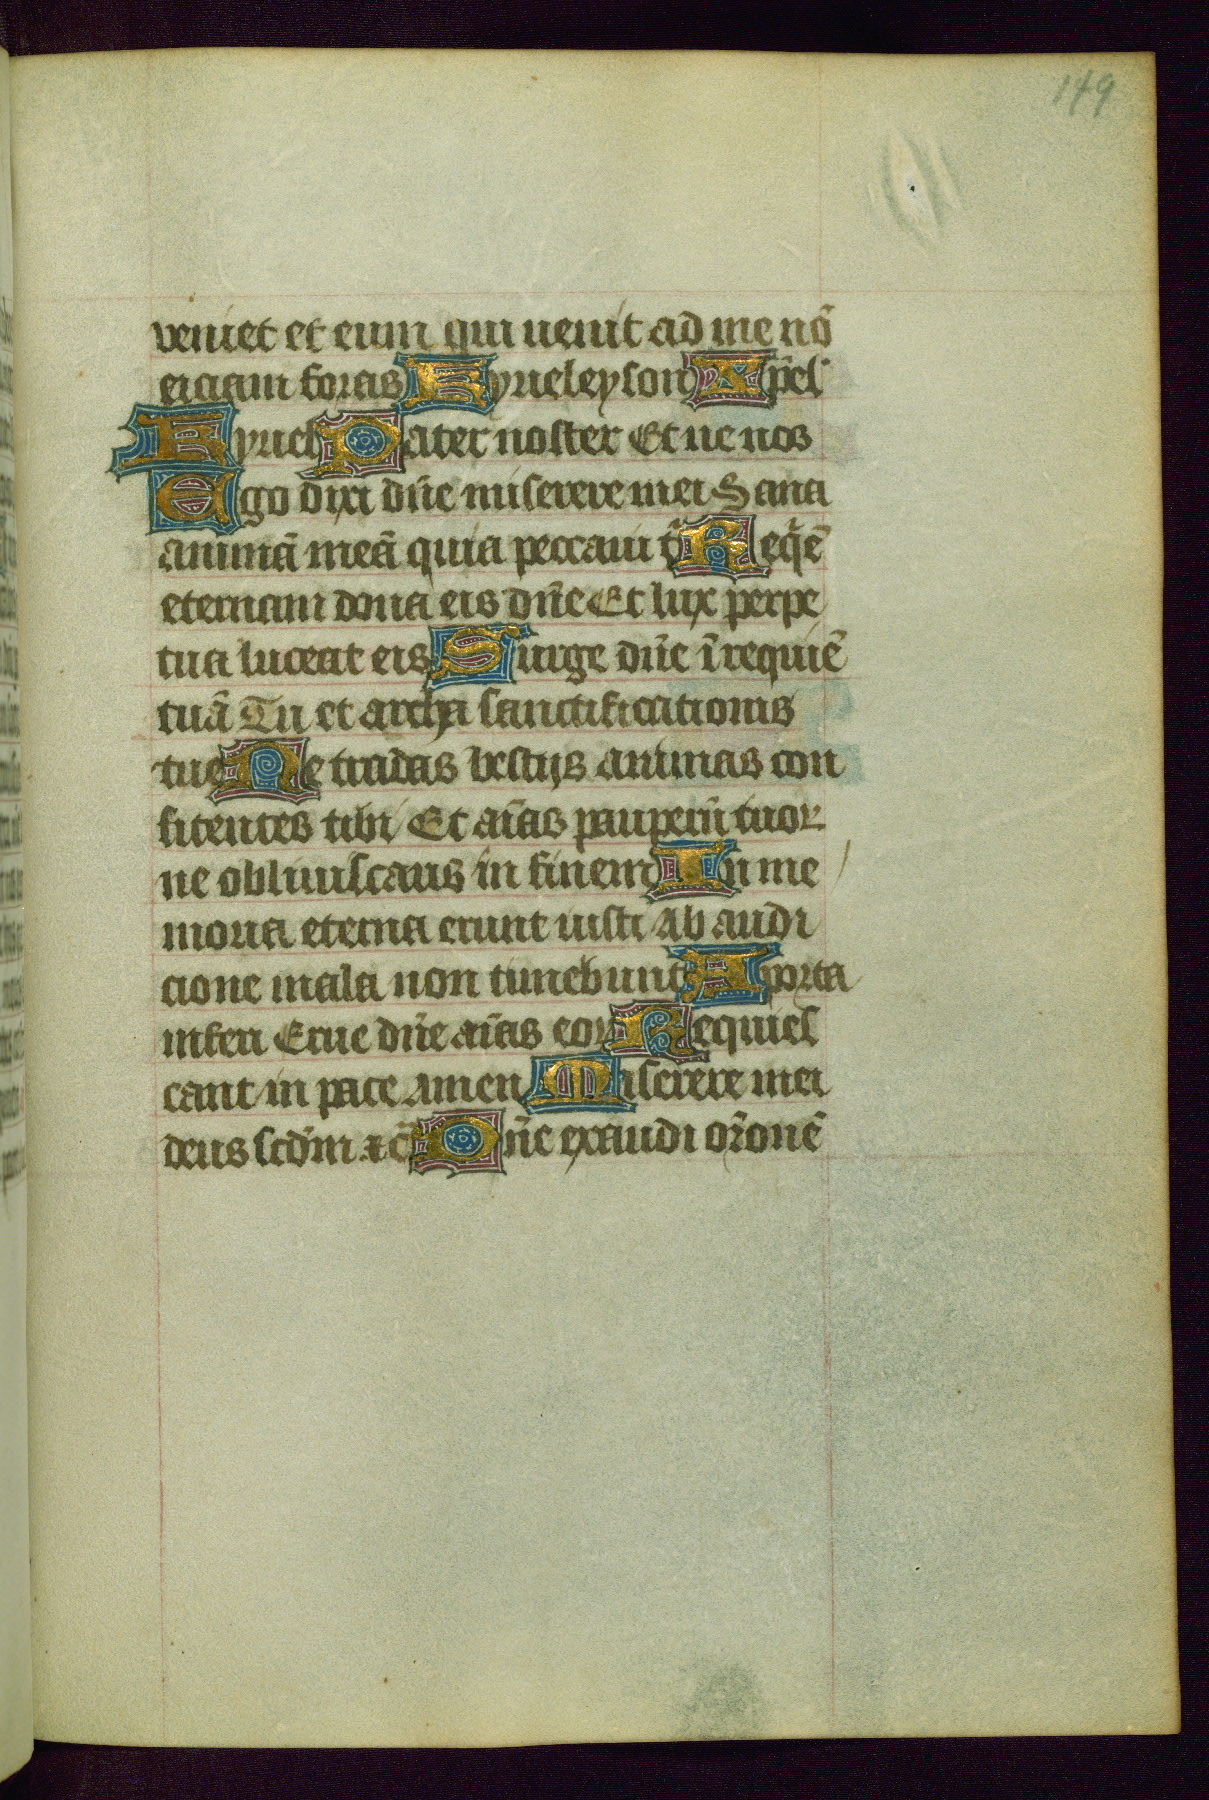 149
veniet et eum qui uenit ad me nō
eiciam foras Kyrieleyson Xp̄el
Kyriel Pater noster Et ne nos
Ego dixi dn̄e miserere mei Sana
animā meā quia peccaui t̄ Req̄ē
eternam dona eis dn̄e Et lux perpe
tua luceat eis Surge dn̄e ī requiē
tuā Tu et archa sanctificationis
tue Ne tradas bestijs animas con
fitentes tibi Et aīas pauperū tuoꝝ
ne obliuiscaris in finem In me
moria eterna erunt iusti Ab audi
cione mala non timebunt A porta
inferi Erue dn̄e aīas eoꝝ Requies
cant in pace amen Miserere mei
deus scdm̄ ⁊c̄ Dn̄e exaudi or̄onē